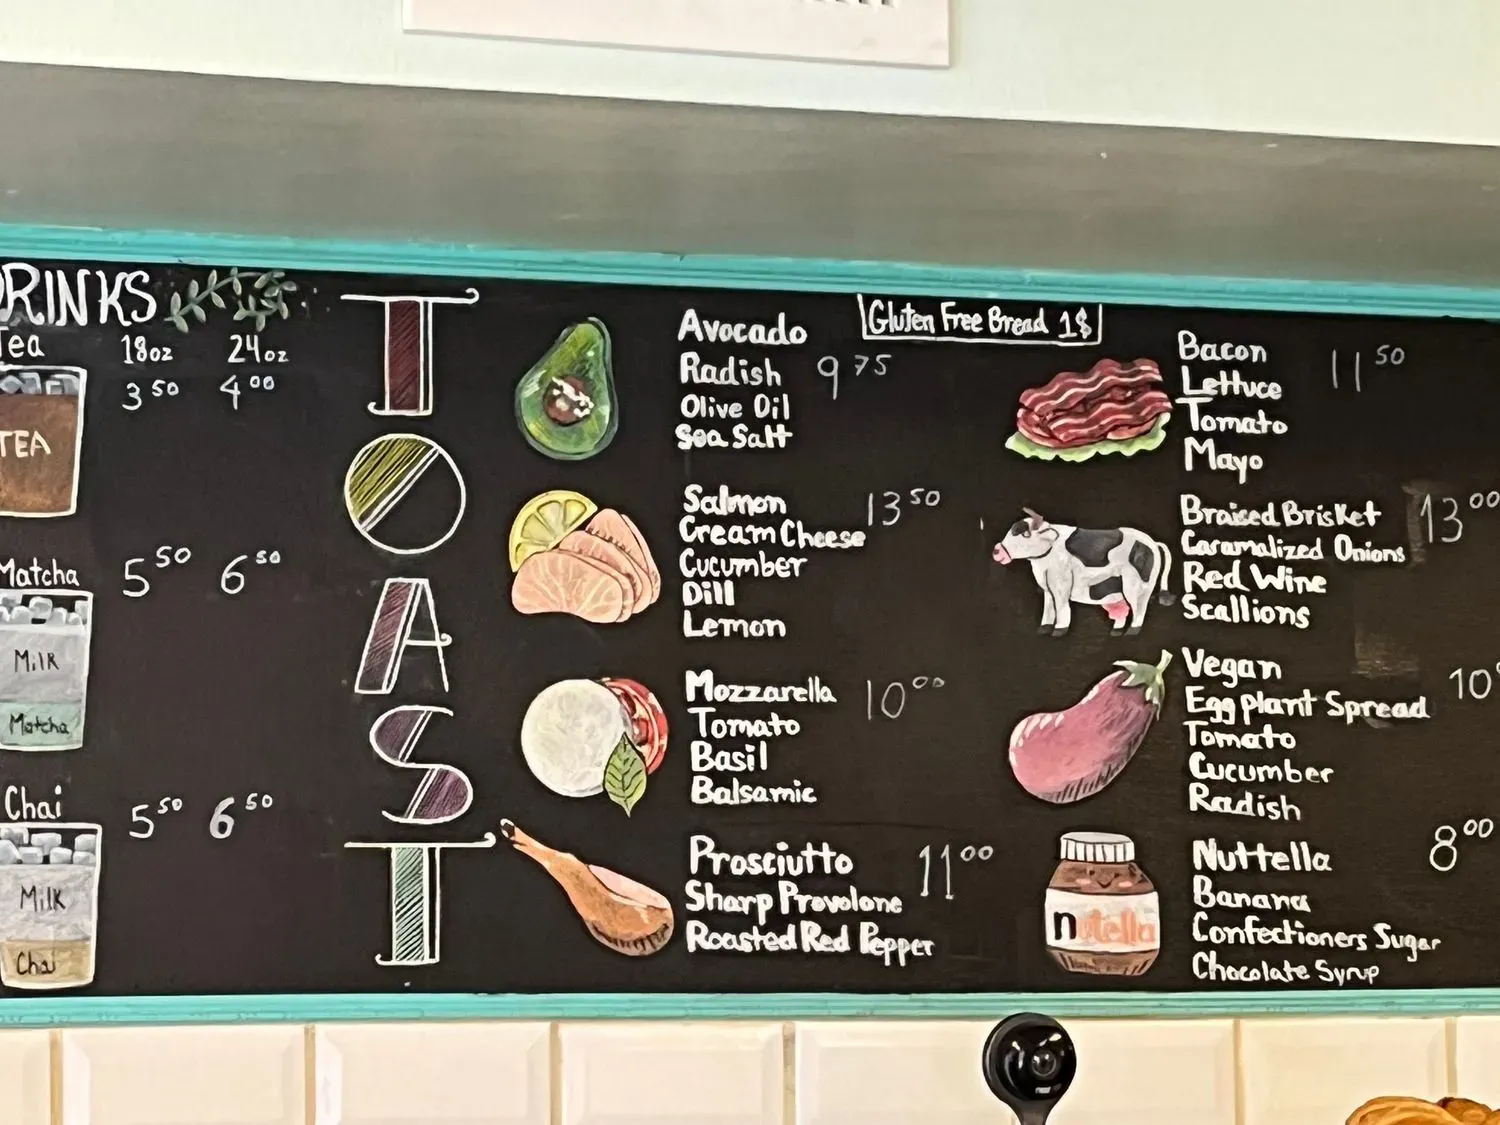 DRINKS
Tea 18oz 24oz
3 50 4 00
TEA
Matcha 5 50 6 50
Milk
Matcha
Chai 5 50 6 50
Milk
Chai
TOAST
Gluten Free Bread 1$
Avocado
Radish 9 75
Olive Oil
Sea Salt
Salmon 13 50
Cream Cheese
Cucumber
Dill
Lemon
Mozzarella 10 00
Tomato
Basil
Balsamic
Prosciutto 11 00
Sharp Provolone
Roasted Red Pepper
Bacon 11 50
Lettuce
Tomato
Mayo
Braised Brisket 13 00
Caramalized Onions
Red Wine
Scallions
Vegan 10
Eggplant Spread
Tomato
Cucumber
Radish
nutella
Nuttella 8 00
Banana
Confectioners Sugar
Chocolate Syrup